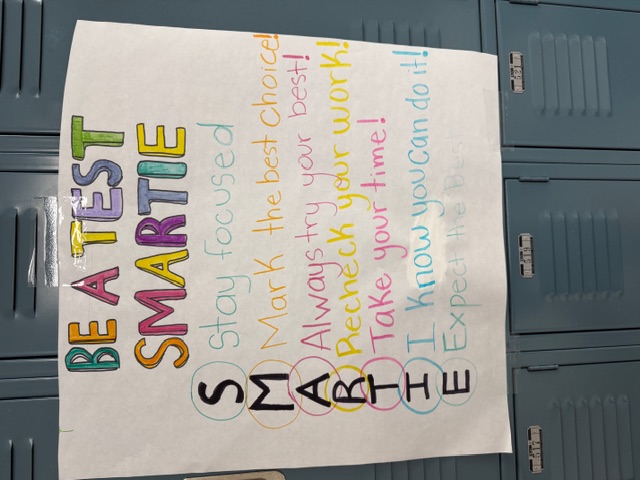 BE A TEST
SMARTIE
Stay focused
Mark the best choice!
Always try your best!
Recheck your work!
Take your time!
I know you can do it!
Expect the Best